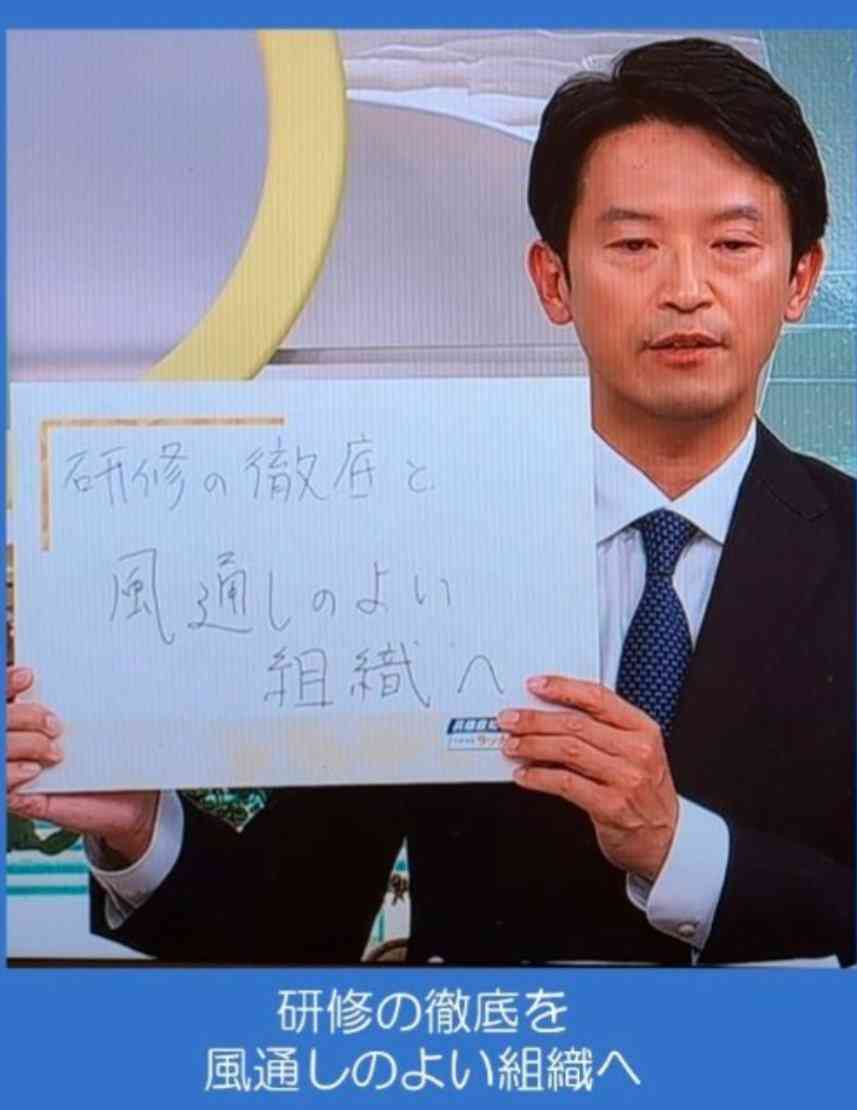 研修の徹底と
風通しのよい
組織へ
研修の徹底を
風通しのよい組織へ